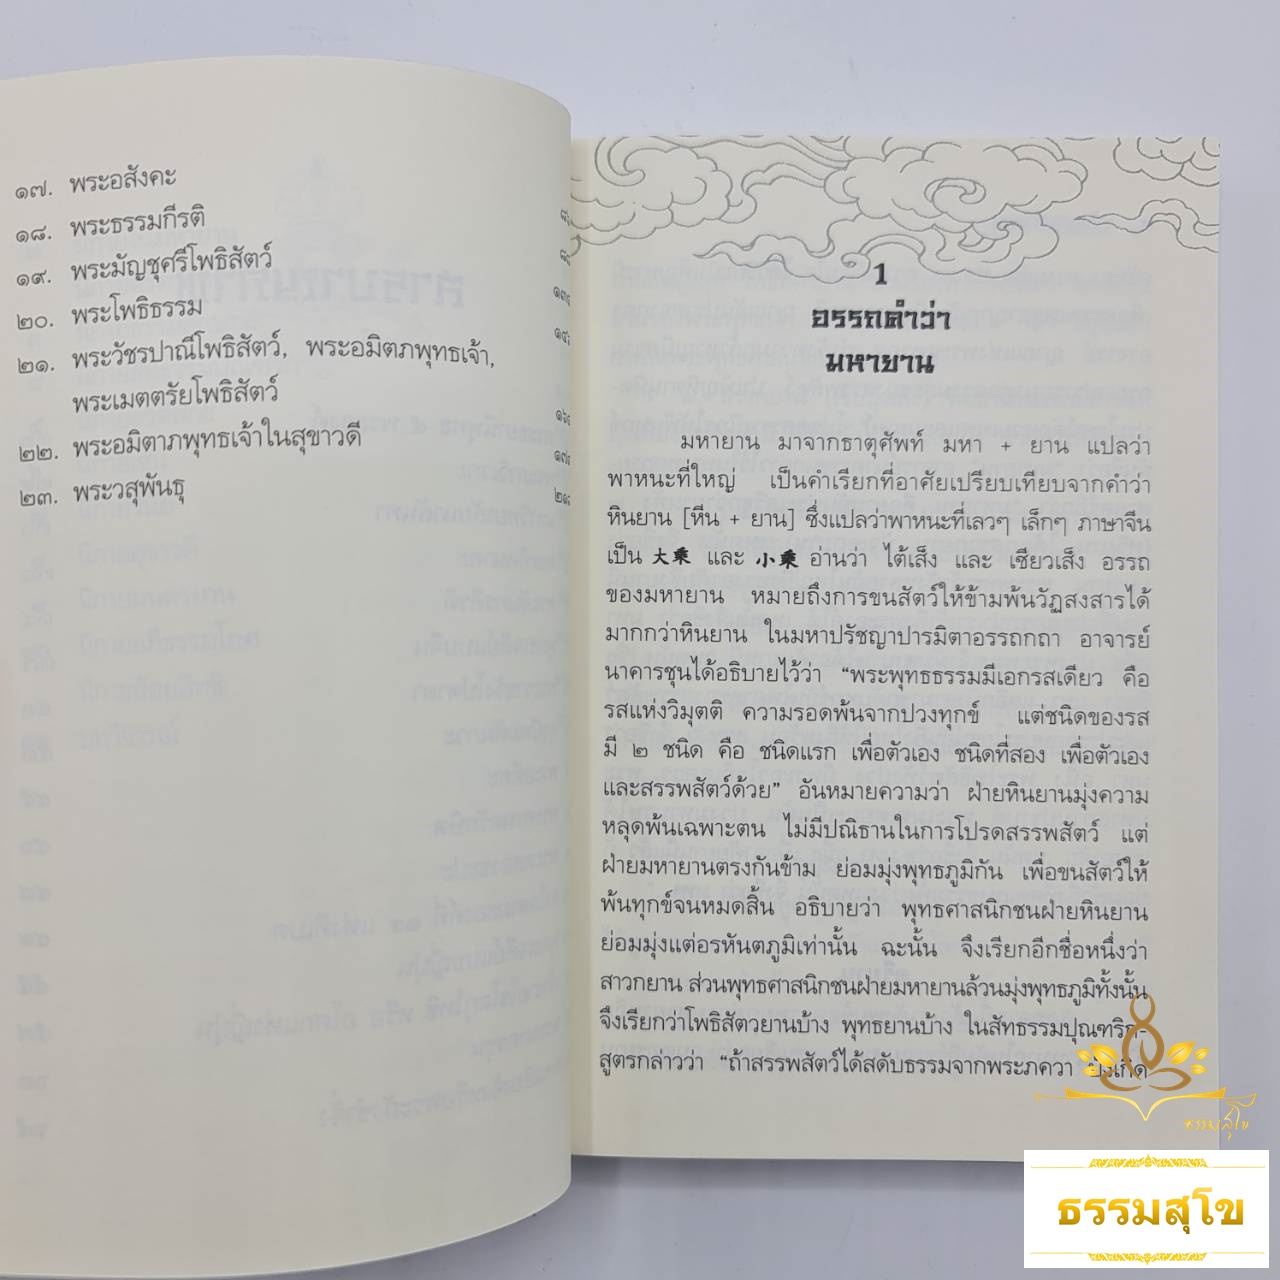 ๑๗. พระอสังคะ
๑๘. พระธรรมกีรติ
๑๙. พระมัญชุศรีโพธิสัตว์
๒๐. พระโพธิธรรม
๒๑. พระวัชรปาณีโพธิสัตว์, พระอมิตภพุทธเจ้า,
พระเมตตรัยโพธิสัตว์
๒๒. พระอมิตาภพุทธเจ้าในสุขาวดี
๒๓. พระวสุพันธุ
1
อรรถคำว่า
มหายาน
มหายาน มาจากธาตุศัพท์ มหา + ยาน แปลว่า
พาหนะที่ใหญ่ เป็นคำเรียกที่อาศัยเปรียบเทียบจากคำว่า
หินยาน [หีน + ยาน] ซึ่งแปลว่าพาหนะที่เลวๆ เล็กๆ ภาษาจีน
เป็น 大乘 และ 小乘 อ่านว่า ไต้เส็ง และ เซียวเส็ง อรรถ
ของมหายาน หมายถึงการขนสัตว์ให้ข้ามพ้นวัฏสงสารได้
มากกว่าหินยาน ในมหาปรัชญาปารมิตาอรรถกถา อาจารย์
นาคารชุนได้อธิบายไว้ว่า “พระพุทธธรรมมีเอกรสเดียว คือ
รสแห่งวิมุตติ ความรอดพ้นจากปวงทุกข์ แต่ชนิดของรส
มี ๒ ชนิด คือ ชนิดแรก เพื่อตัวเอง ชนิดที่สอง เพื่อตัวเอง
และสรรพสัตว์ด้วย” อันหมายความว่า ฝ่ายหินยานมุ่งความ
หลุดพ้นเฉพาะตน ไม่มีปณิธานในการโปรดสรรพสัตว์ แต่
ฝ่ายมหายานตรงกันข้าม ย่อมมุ่งพุทธภูมิกัน เพื่อขนสัตว์ให้
พ้นทุกข์จนหมดสิ้น อธิบายว่า พุทธศาสนิกชนฝ่ายหินยาน
ย่อมมุ่งแต่อรหันตภูมิเท่านั้น ฉะนั้น จึงเรียกอีกชื่อหนึ่งว่า
สาวกยาน ส่วนพุทธศาสนิกชนฝ่ายมหายานล้วนมุ่งพุทธภูมิทั้งนั้น
จึงเรียกว่าโพธิสัตวยานบ้าง พุทธยานบ้าง ในสัทธรรมปุณฑริก-
สูตรกล่าวว่า “ถ้าสรรพสัตว์ได้สดับธรรมจากพระภควา บังเกิด
ธรรมสุโข
ธรรมสุโข